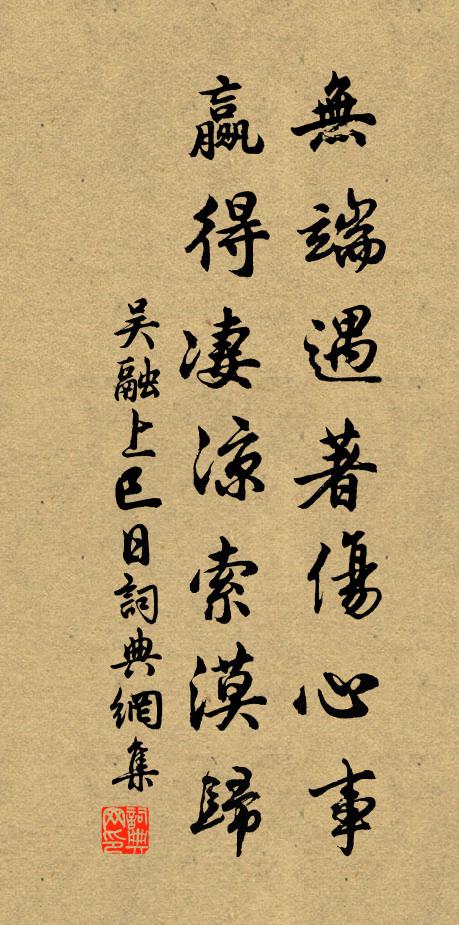 無端遇著傷心事
贏得淒涼索漠歸
吴融上巳日詞典網集
詞典網印